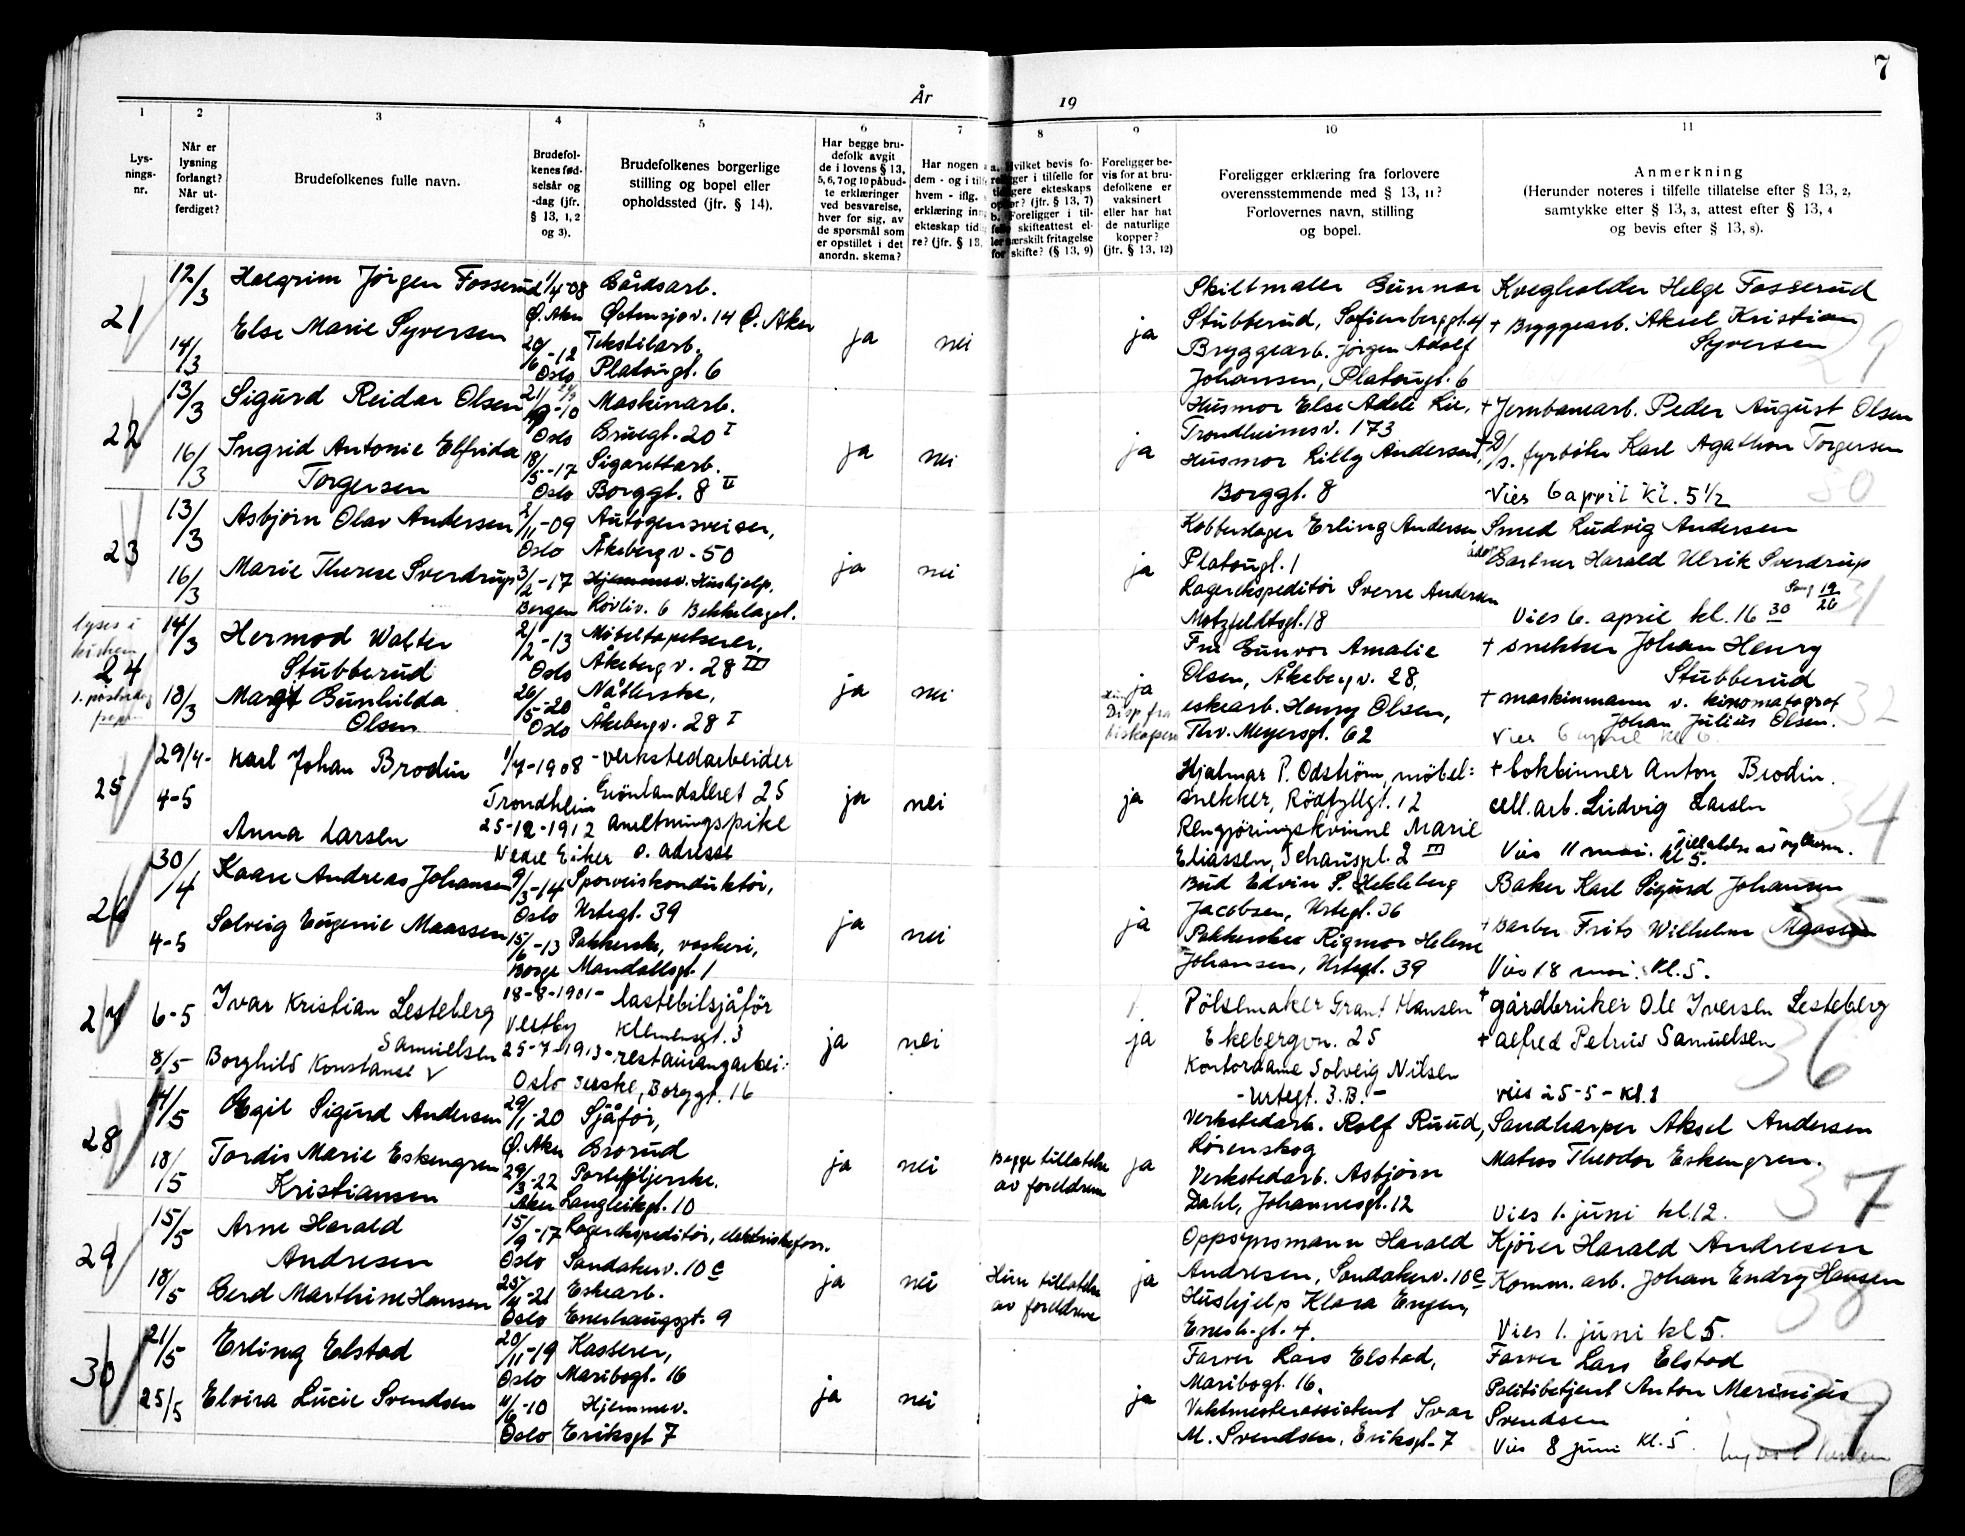 7
År
19
1
2
3
4
5
6
7
8
9
10
11
Lys-
nings-
nr.
Når er
lysning
forlangt?
Når ut-
ferdiget?
Brudefolkenes fulle navn.
Brudefol-
kenes fød-
selsår og
-dag (jfr.
§ 13, 1, 2
og 3).
Brudefolkenes borgerlige
stilling og bopel eller
opholdssted (jfr. § 14).
Har begge bru-
defolk avgit
de i lovens § 13,
5, 6, 7 og 10 påbud-
te erklæringer
ved besvarelse,
hver for sig, av
de spørsmål som
er opstillet i det
anordn. skema?
Har nogen
dem - og i til
hvem - iflg.
erklæring inn
ekteskap tid
re? (jfr. § 13,
Hvilket bevis fo-
ligger i tilfelle for
gere ekteskaps
ophør? (jfr. § 13, 7)
b. Foreligger i til-
felle skifteattest el-
ler særskilt fritagelse
for skifte? (§ 13, 9)
Foreligger be-
vis for at bru-
defolkene er
vaksinert
eller har hat
de naturlige
kopper?
(jfr. § 13, 12)
Foreligger erklæring fra forlovere
overensstemmende med § 13, 11?
Forlovernes navn, stilling
og bopel.
Anmerkning
(Herunder noteres i tilfelle tillatelse efter § 13, 2,
samtykke efter § 13, 3, attest efter § 13, 4
og bevis efter § 13, 8).
21
12/3
14/3
Halgrim Jørgen Fosserud
Else Marie Syversen
1/4-08
Ø. Aker
20/6-12
Oslo
Gårdsarb.
Østensjøv. 14 Ø. Aker
Tekstilarb.
Platougt. 6
ja
nei
ja
Skiltmaler Gunnar
Stubberud, Sofienberggt. 4
Bryggearb. Jørgen Adolf
Johansen, Platougt. 6
Kvegholder Helge Fosserud
+ Bryggearb. Aksel Kristian
Syversen
29
22
13/3
16/3
Sigurd Reidar Olsen
Ingrid Antonie Elfrida
Torgersen
-10
Oslo
18/5-17
Oslo
Maskinarb.
Gruegt. 20 I
Sigarettarb.
Borggt. 8 II
ja
nei
ja
Husmor Else Adele Lie,
Trondheimsv. 173
Husmor Lilly Andersen,
Borggt. 8
+ Jernbanearb. Peder August Olsen
+ D/s. fyrbøter Karl Agathon Torgersen
Vies 6 april kl. 5 1/2
30
23
13/3
16/3
Asbjørn Olav Andersen
Marie Therese Sverdrup
2/11-09
Oslo
3/2-17
Bergen
Autogensveiser,
Åkebergv. 50
Hjemmev. Hushjelp.
Løvliv. 6 Bekkelaget.
ja
nei
ja
Kobberslager Erling Andersen
Platougt. 1
Lagerekspeditør Sverre Andersen
Motzfeldtsgt. 18
Smed Ludvig Andersen
Gartner Harald Ulrik Sverdrup
Vies 6. april kl. 16 30
31
lyses i
kirken
24
14/3
18/3
Hermod Walter
Stubberud
Margit Gunhilda
Olsen
2/2-13
Oslo
26/5-20
Oslo
Møbeltapetserer,
Åkebergv. 28 III
Nåtlerske,
Åkebergv. 28 I
ja
nei
ja
Disp fra
biskopen
Fru Gunvor Amalie
Olsen, Åkebergv. 28,
eskearb. Henry Olsen,
Thv. Meyersgt. 62
+ snekker Johan Henry
Stubberud
+ maskinmann v. kinomatograf
Johan Julius Olsen.
Vies 6 april kl 6.
32
25
29/4-
4-5
Karl Johan Brodin
Anna Larsen
1/7-1908
Trondheim
25-12-1912
Nedre Eiker
- verkstedarbeider
Grönlandsleret 25
anretningspike
s. adresse
ja
nei
ja
Hjalmar P. Odström, möbel:
snekker, Rödfyllgt. 12
Rengjöringskvinne Marie
Eliassen, Schauspl. 2 III
+ bokbinner Anton Brodin.
cell. arb. Ludvig Larsen
Vies 11 mai.
kl 5.
34
26
30/4
4-5
Kaare Andreas Johansen
Solveig Eugenie Maassen
9/3-14
Oslo
15/6-13
Borge
Sporveiskonduktør,
Urtegt. 39
Pakkerske, vaskeri,
Mandallsgt. 1
ja
nei
ja
Bud Edvin S. Hekleberg
Jacobsen, Urtegt. 36
Pakkerske Rigmor Helene
Johansen, Urtegt. 39
Baker Karl Sigurd Johansen
+ Barber Frits Wilhelm Maassen
Vies 18 mai. kl. 5.
35
27
6-5
8/5
Ivar Kristian Lesteberg
Samuelsen
Borghild Konstanse
18-8-1901-
Vestby
25-7-1913-
Oslo
lastebilsjåför
Klemensgt. 3
restaurangarbei:
derske, Borggt. 16
ja
nei
ja
Pölsemaker Grant Hansen
Ekebergvn. 25
Kontordame Solveig Nilsen
- Urtegt. 3.B. -
+ gårdbruker Ole Iversen Lesteberg
+ alfred Petrus Samuelsen
vies 25-5- kl. 1
36
28
14/5
18/5
Egil Sigurd Andersen
Tordis Marie Eskengren
Kristiansen
29/1-20
Ø. Aker
29/3-22
Aker
Sjåför,
Brorud
Porteføljerske.
Langleiksgt. 10
ja
nei
Begge tillatelse
av foreldrene
ja
Verkstedarb. Rolf Ruud,
Lørenskog
Verkstedarb. Asbjørn
Dahl, Johannesgt. 12
Sandharper Aksel Andersen
Matros Theodor Eskengren.
Vies 1. juni kl. 12.
37
29
15/5
18/5
Arne Harald
Andresen
Gerd Marthine Hansen
15/9-17
Oslo
25/4-21
Oslo
Lagerekspeditør, elektriskeforr.
Sandakerv. 10 c
Eskearb.
Enerhauggt. 9
ja
nei
Hun tillatelse
av foreldrene
ja
Oppsynsmann Harald
Andresen, Sandakerv. 10 c
Hushjelp Klara Engen,
Enerh. gt. 4.
Kjører Harald Andresen
Komm. arb. Johan Endry Hansen
Vies 1. juni kl 5.
38
30
21/5
25/5
Erling Elstad
Elvira Lucie Svendsen
20/11-19
Oslo
11/6-10
Oslo
Kasserer,
Maribogt. 16
Hjemmev.
Eriksgt 7
ja
nei
ja
Farver Lars Elstad,
Maribogt. 16.
Vaktmesterassistent Ivar
M. Svendsen, Eriksgt. 7
Farver Lars Elstad
Politibetjent Anton Marinius
Svendsen
Vies 8 juni kl. 5.
39